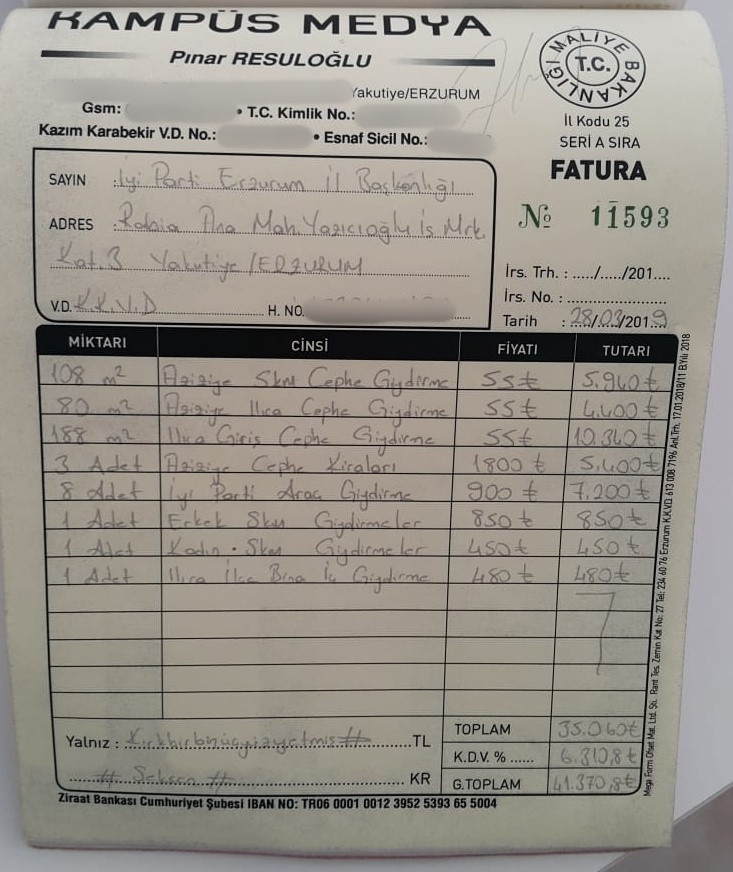 KAMPÜS MEDYA
Pınar RESULOĞLU
Yakutiye/ERZURUM
Gsm: • T.C. Kimlik No.:
Kazım Karabekir V.D. No.: • Esnaf Sicil No.:
MALİYE BAKANLIĞI
T.C.
İl Kodu 25
SERİ A SIRA
FATURA
№ 11593
SAYIN : İyi Parti Erzurum İl Başkanlığı
ADRES : Rabia Ana Mah. Yazıcıoğlu İş Mrk.
Kat.3 Yakutiye/ERZURUM
V.D. K.K.V.D H. NO.
İrs. Trh. : ...../...../201....
İrs. No. : .......................
Tarih : 28/03/2019
MİKTARI CİNSİ FİYATI TUTARI
108 m² Aziziye Skm Cephe Giydirme 55₺ 5.940₺
80 m² Aziziye Ilıca Cephe Giydirme 55₺ 4.400₺
188 m² Ilıca Giriş Cephe Giydirme 55₺ 10.340₺
3 Adet Aziziye Cephe Kiraları 1800₺ 5.400₺
8 Adet İyi Parti Araç Giydirme 900₺ 7.200₺
1 Adet Erkek Skm Giydirmeler 850₺ 850₺
1 Adet Kadın Skm Giydirmeler 450₺ 450₺
1 Adet Ilıca İlçe Bina İç Giydirme 480₺ 480₺
TOPLAM 35.060₺
Yalnız : Kırkbirbinüçyüzyetmiş # TL
K.D.V. % ...... 6.310,8₺
# Seksen # KR
G.TOPLAM 41.370,8₺
Ziraat Bankası Cumhuriyet Şubesi IBAN NO: TR06 0001 0012 3952 5393 65 5004
Mega Form Ofset Mat. Ltd. Şti. Rant Tes. Zemin Kat No: 27 Tel: 234 60 76 Erzurum K.K.V.D. 613 008 7196 Anl.Trh. 17.01.2018/11 B.Yılı 2018